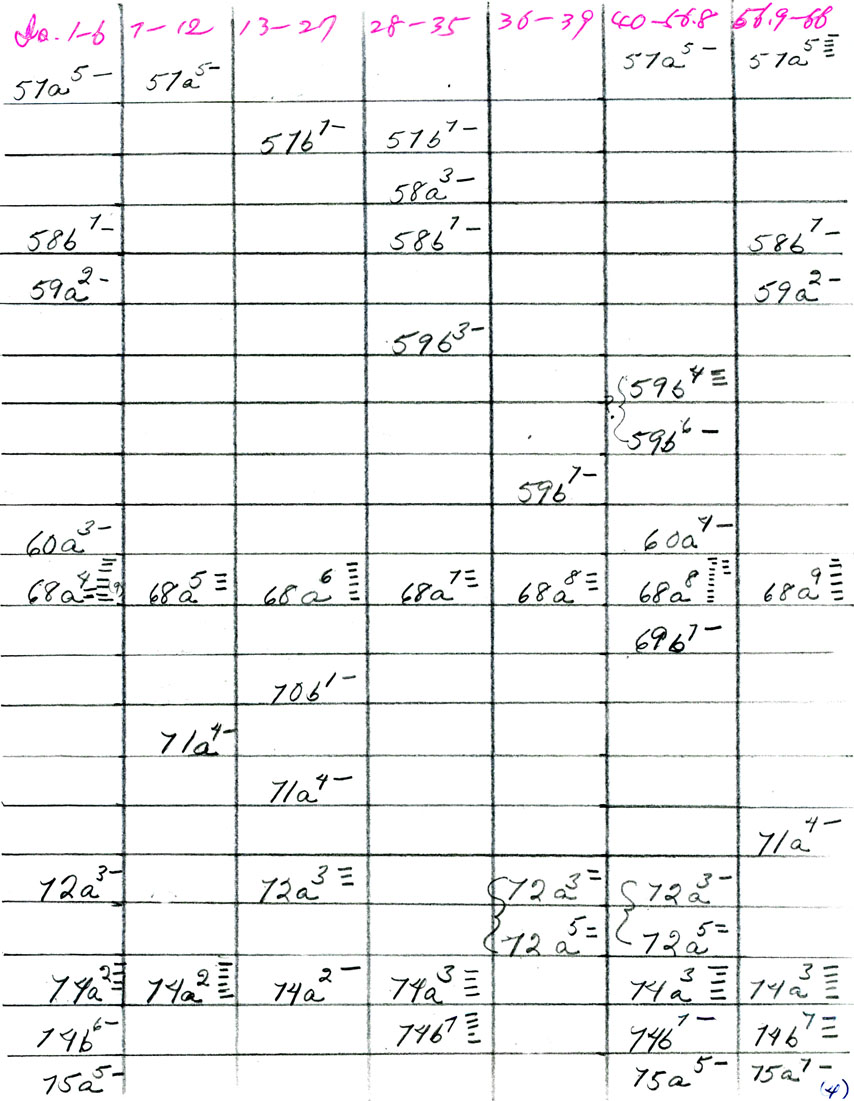 Is. 1-6 7-12 13-27 28-35 36-39 40-56.8 56.9-66
57a⁵ – 57a⁵ – 57a⁵ – 57a⁵ ≡
57b⁷ – 57b⁷ –
58a³ –
58b⁷ – 58b⁷ – 58b⁷ –
59a² – 59a² –
59b³ –
?{ 59b⁴ ≡
59b⁶ –
59b⁷ –
60a³ – 60a⁴ –
68a⁴ 68a⁵ ≡ 68a⁶ 68a⁷ ≡ 68a⁸ ≡ 68a⁸ 68a⁹
69b⁷ –
70b¹ –
71a⁴ –
71a⁴ –
71a⁴ –
72a³ – 72a³ ≡ { 72a³ = { 72a³ –
72a⁵ = 72a⁵ =
74a² 74a² 74a² – 74a³ 74a³ 74a³
74b⁶ – 74b⁷ 74b⁷ – 74b⁷ ≡
75a⁵ – 75a⁵ – 75a⁷ –
(4)